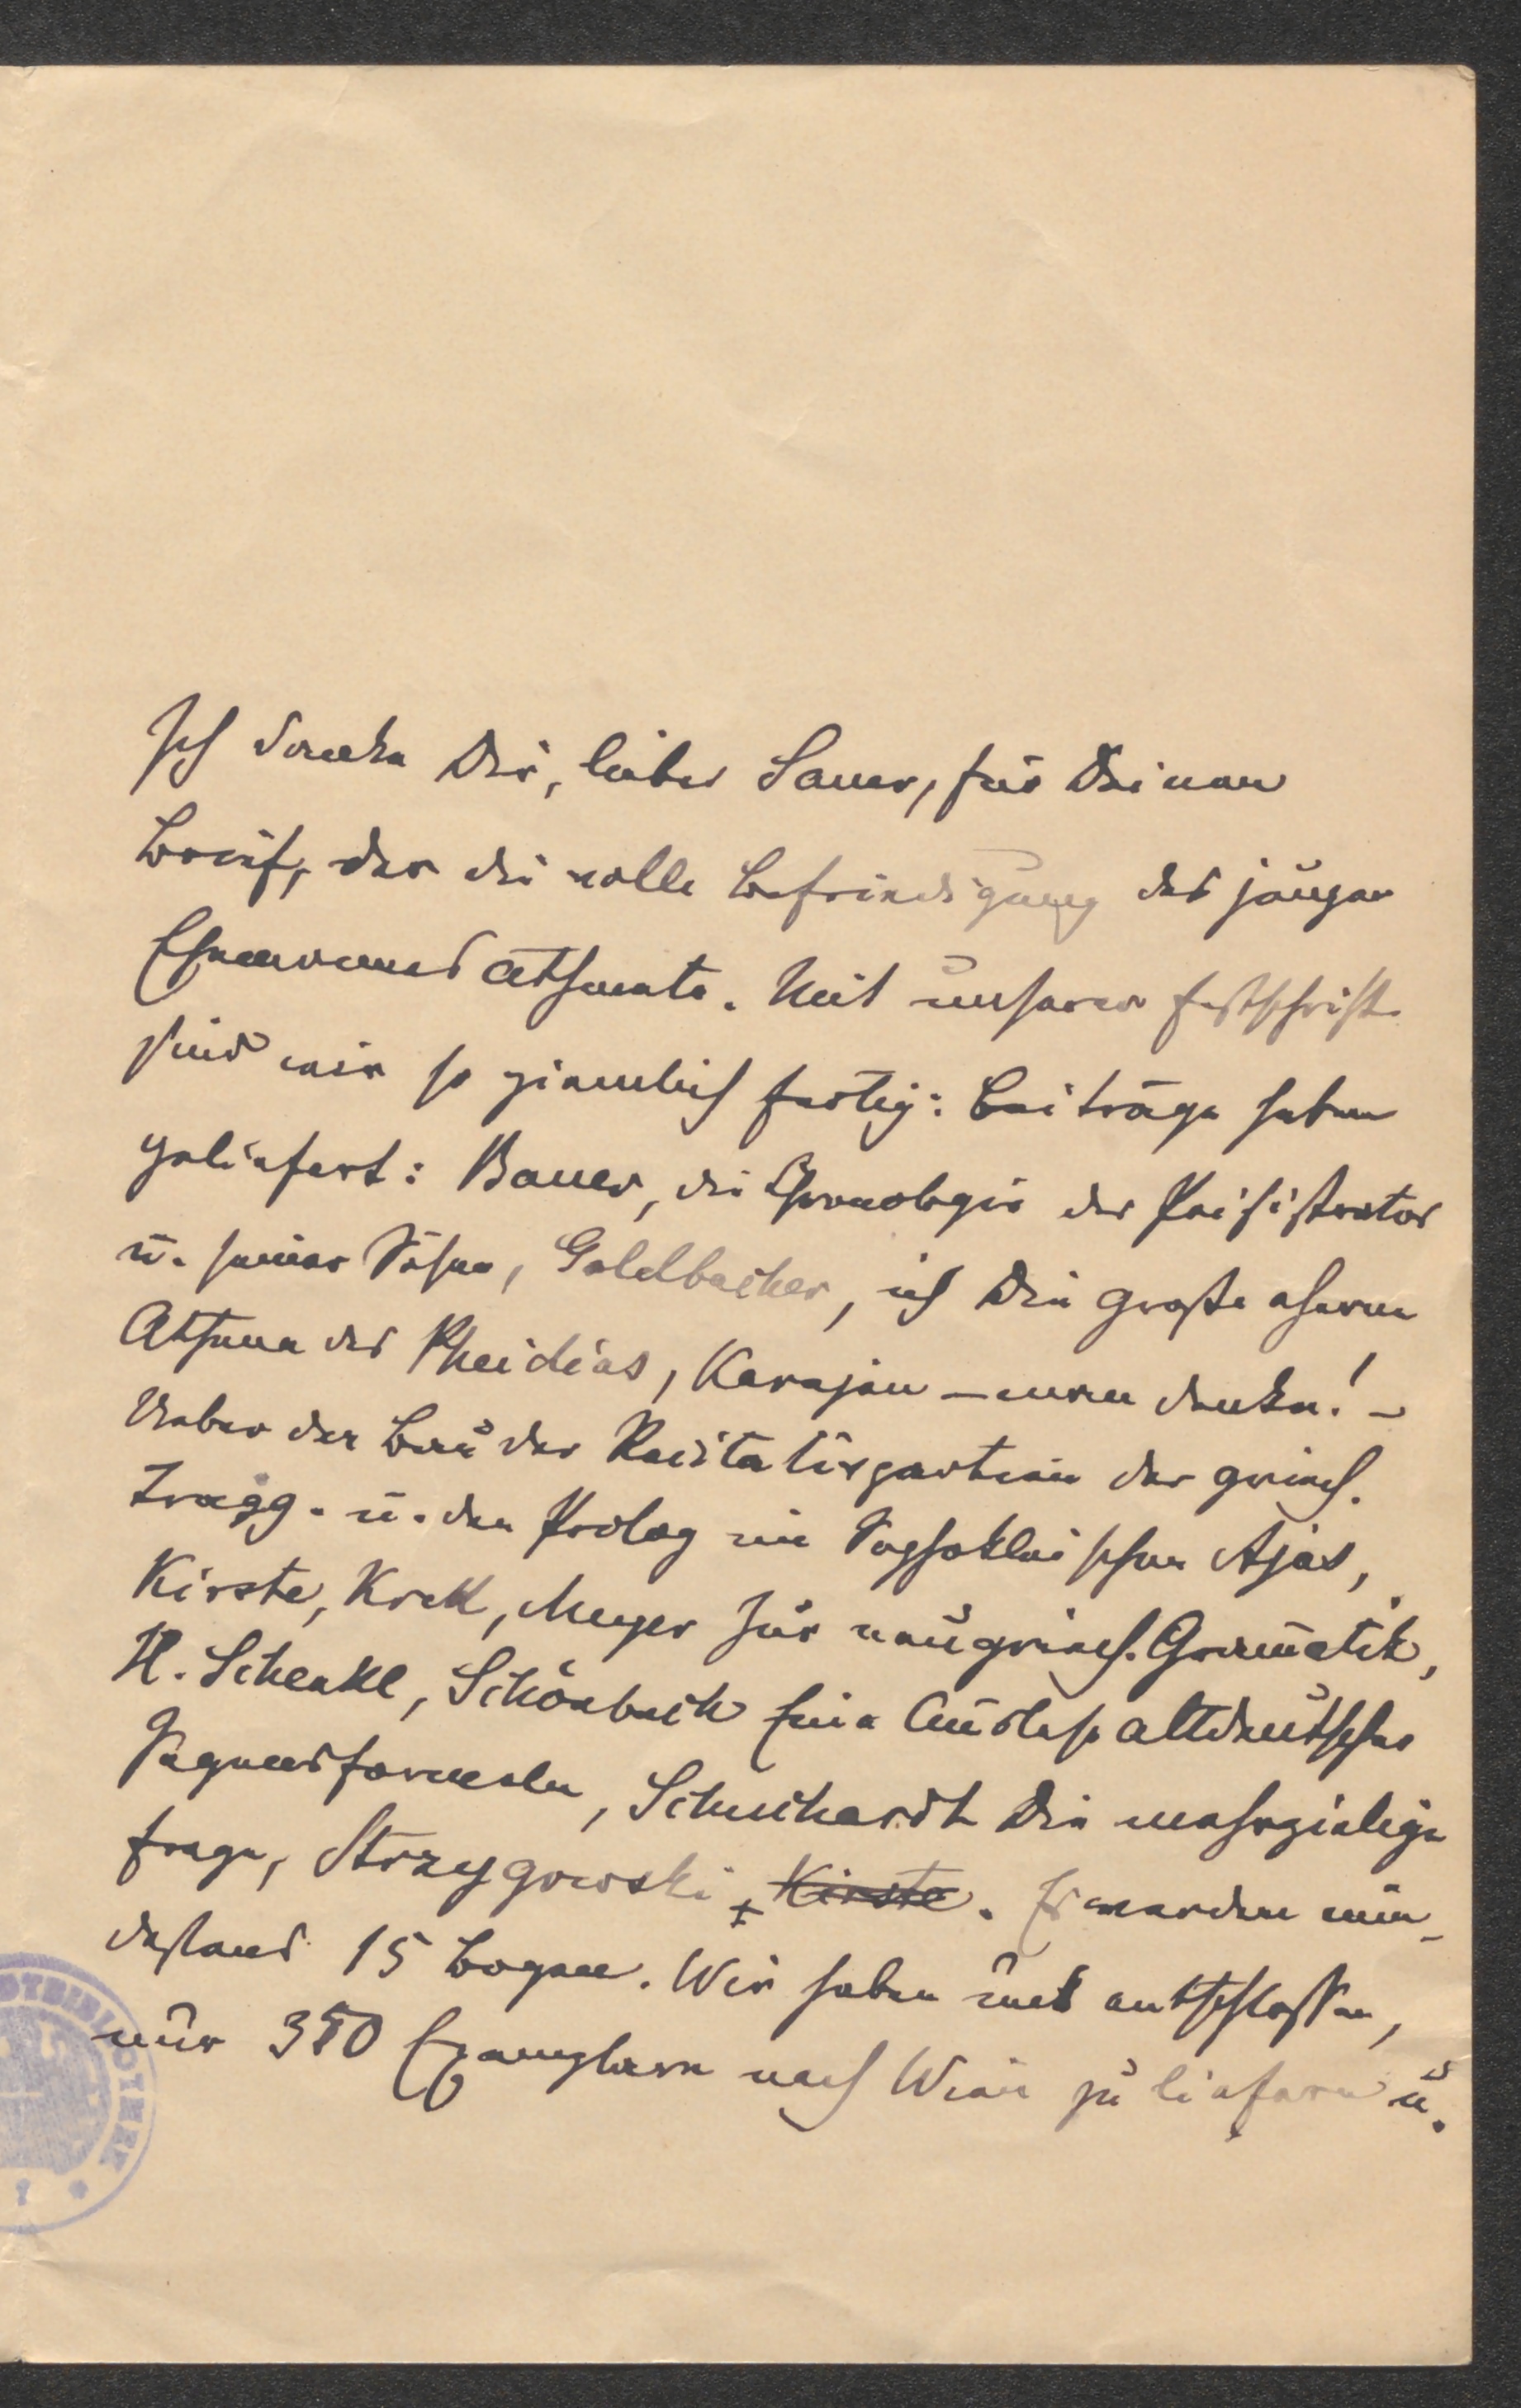 Ich danke Dir, lieber Sauer, für Deinen
Brief, der die volle Befriedigung des jungen
Ehemannes athmete. Mit unserer Festschrift
sind wir so ziemlich fertig: Beiträge haben
geliefert: Bauer, die Chronologie des Peisistratos
u. seiner Söhne, Goldbacher, ich Die große eherne
Athena des Pheidias, Karajan – man denke! –
Ueber den Bau der Recitativpartien der griech.
Tragg. u. den Prolog im Sophokleischen Ajas,
Kirste, Krek, Meyer Zur neugriech. Gram̅atik,
H. Schenkl, Schönbach Eine Auslese altdeutscher
Segensformeln, Schuchardt Die mehrzielige
Frage, Strzygowski + Kirste. Es werden min-
destens 15 Bogen. Wir haben uns entschlossen,
nur 350 Exemplare nach Wien zu liefern u.